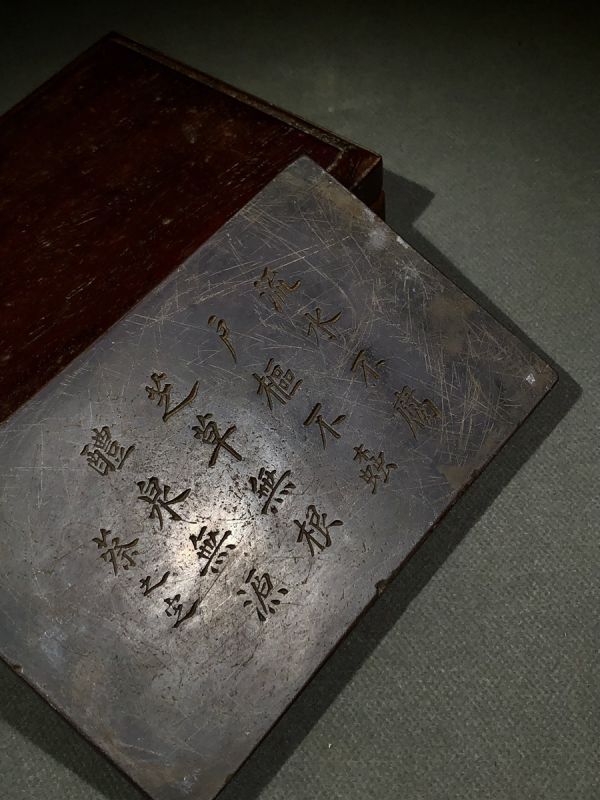 流水不腐
户樞不蠹
芝草無根
醴泉無源
蔡之定